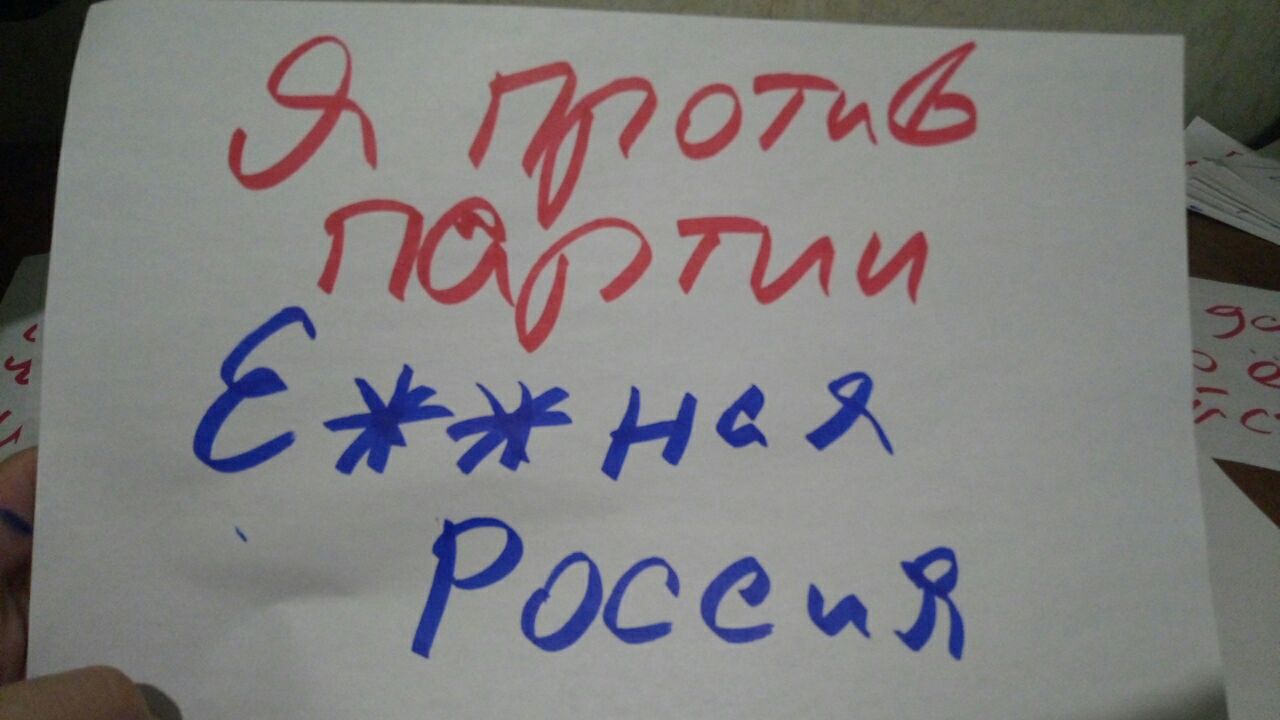 Я против
партии
Е**ная
Россия